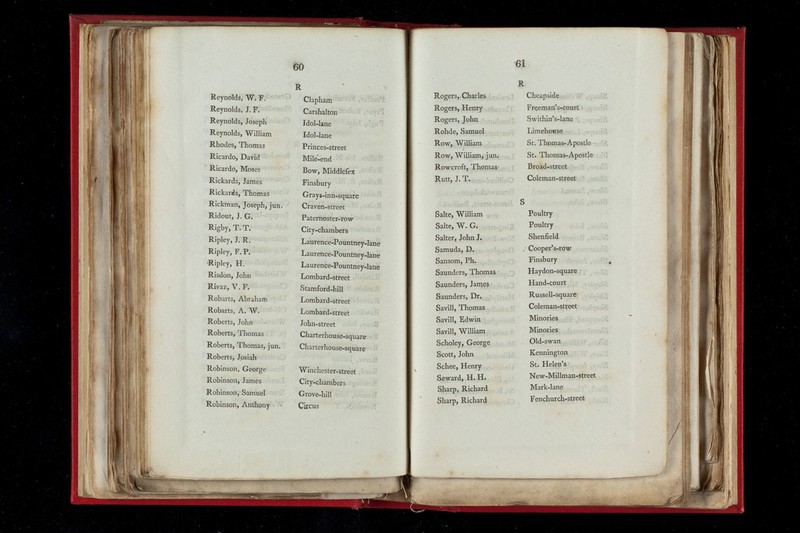 60
R
Reynolds, W. F. Clapham
Reynolds, J. F. Carshalton
Reynolds, Joseph Idol-lane
Reynolds, William Idol-lane
Rhodes, Thomas Princes-street
Ricardo, David Mile-end
Ricardo, Moses Bow, Middlesex
Rickards, James Finsbury
Rickards, Thomas Grays-inn-square
Rickman, Joseph, jun. Craven-street
Ridout, J. G. Paternoster-row
Rigby, T. T. City-chambers
Ripley, J. R. Laurence-Pountney-lane
Ripley, F. P. Laurence-Pountney-lane
Ripley, H. Laurence-Pountney-lane
Risdon, John Lombard-street
Rivaz, V. F. Stamford-hill
Robarts, Abraham Lombard-street
Robarts, A. W. Lombard-street
Roberts, John John-street
Roberts, Thomas Charterhouse-square
Roberts, Thomas, jun. Charterhouse-square
Roberts, Josiah
Robinson, George Winchester-street
Robinson, James City-chambers
Robinson, Samuel Grove-hill
Robinson, Anthony Circus
61
R
Rogers, Charles Cheapside
Rogers, Henry Freeman's-court
Rogers, John Swithin's-lane
Rohde, Samuel Limehouse
Row, William St. Thomas-Apostle
Row, William, jun. St. Thomas-Apostle
Rowcroft, Thomas Broad-street
Rutt, J. T. Coleman-street
S
Salte, William Poultry
Salte, W. G. Poultry
Salter, John J. Shenfield
Samuda, D. Cooper's-row
Sansom, Ph. Finsbury
Saunders, Thomas Haydon-square
Saunders, James Hand-court
Saunders, Dr. Russell-square
Savill, Thomas Coleman-street
Savill, Edwin Minories
Savill, William Minories
Scholey, George Old-swan
Scott, John Kennington
Schee, Henry St. Helen's
Seward, H. H. New-Millman-street
Sharp, Richard Mark-lane
Sharp, Richard Fenchurch-street